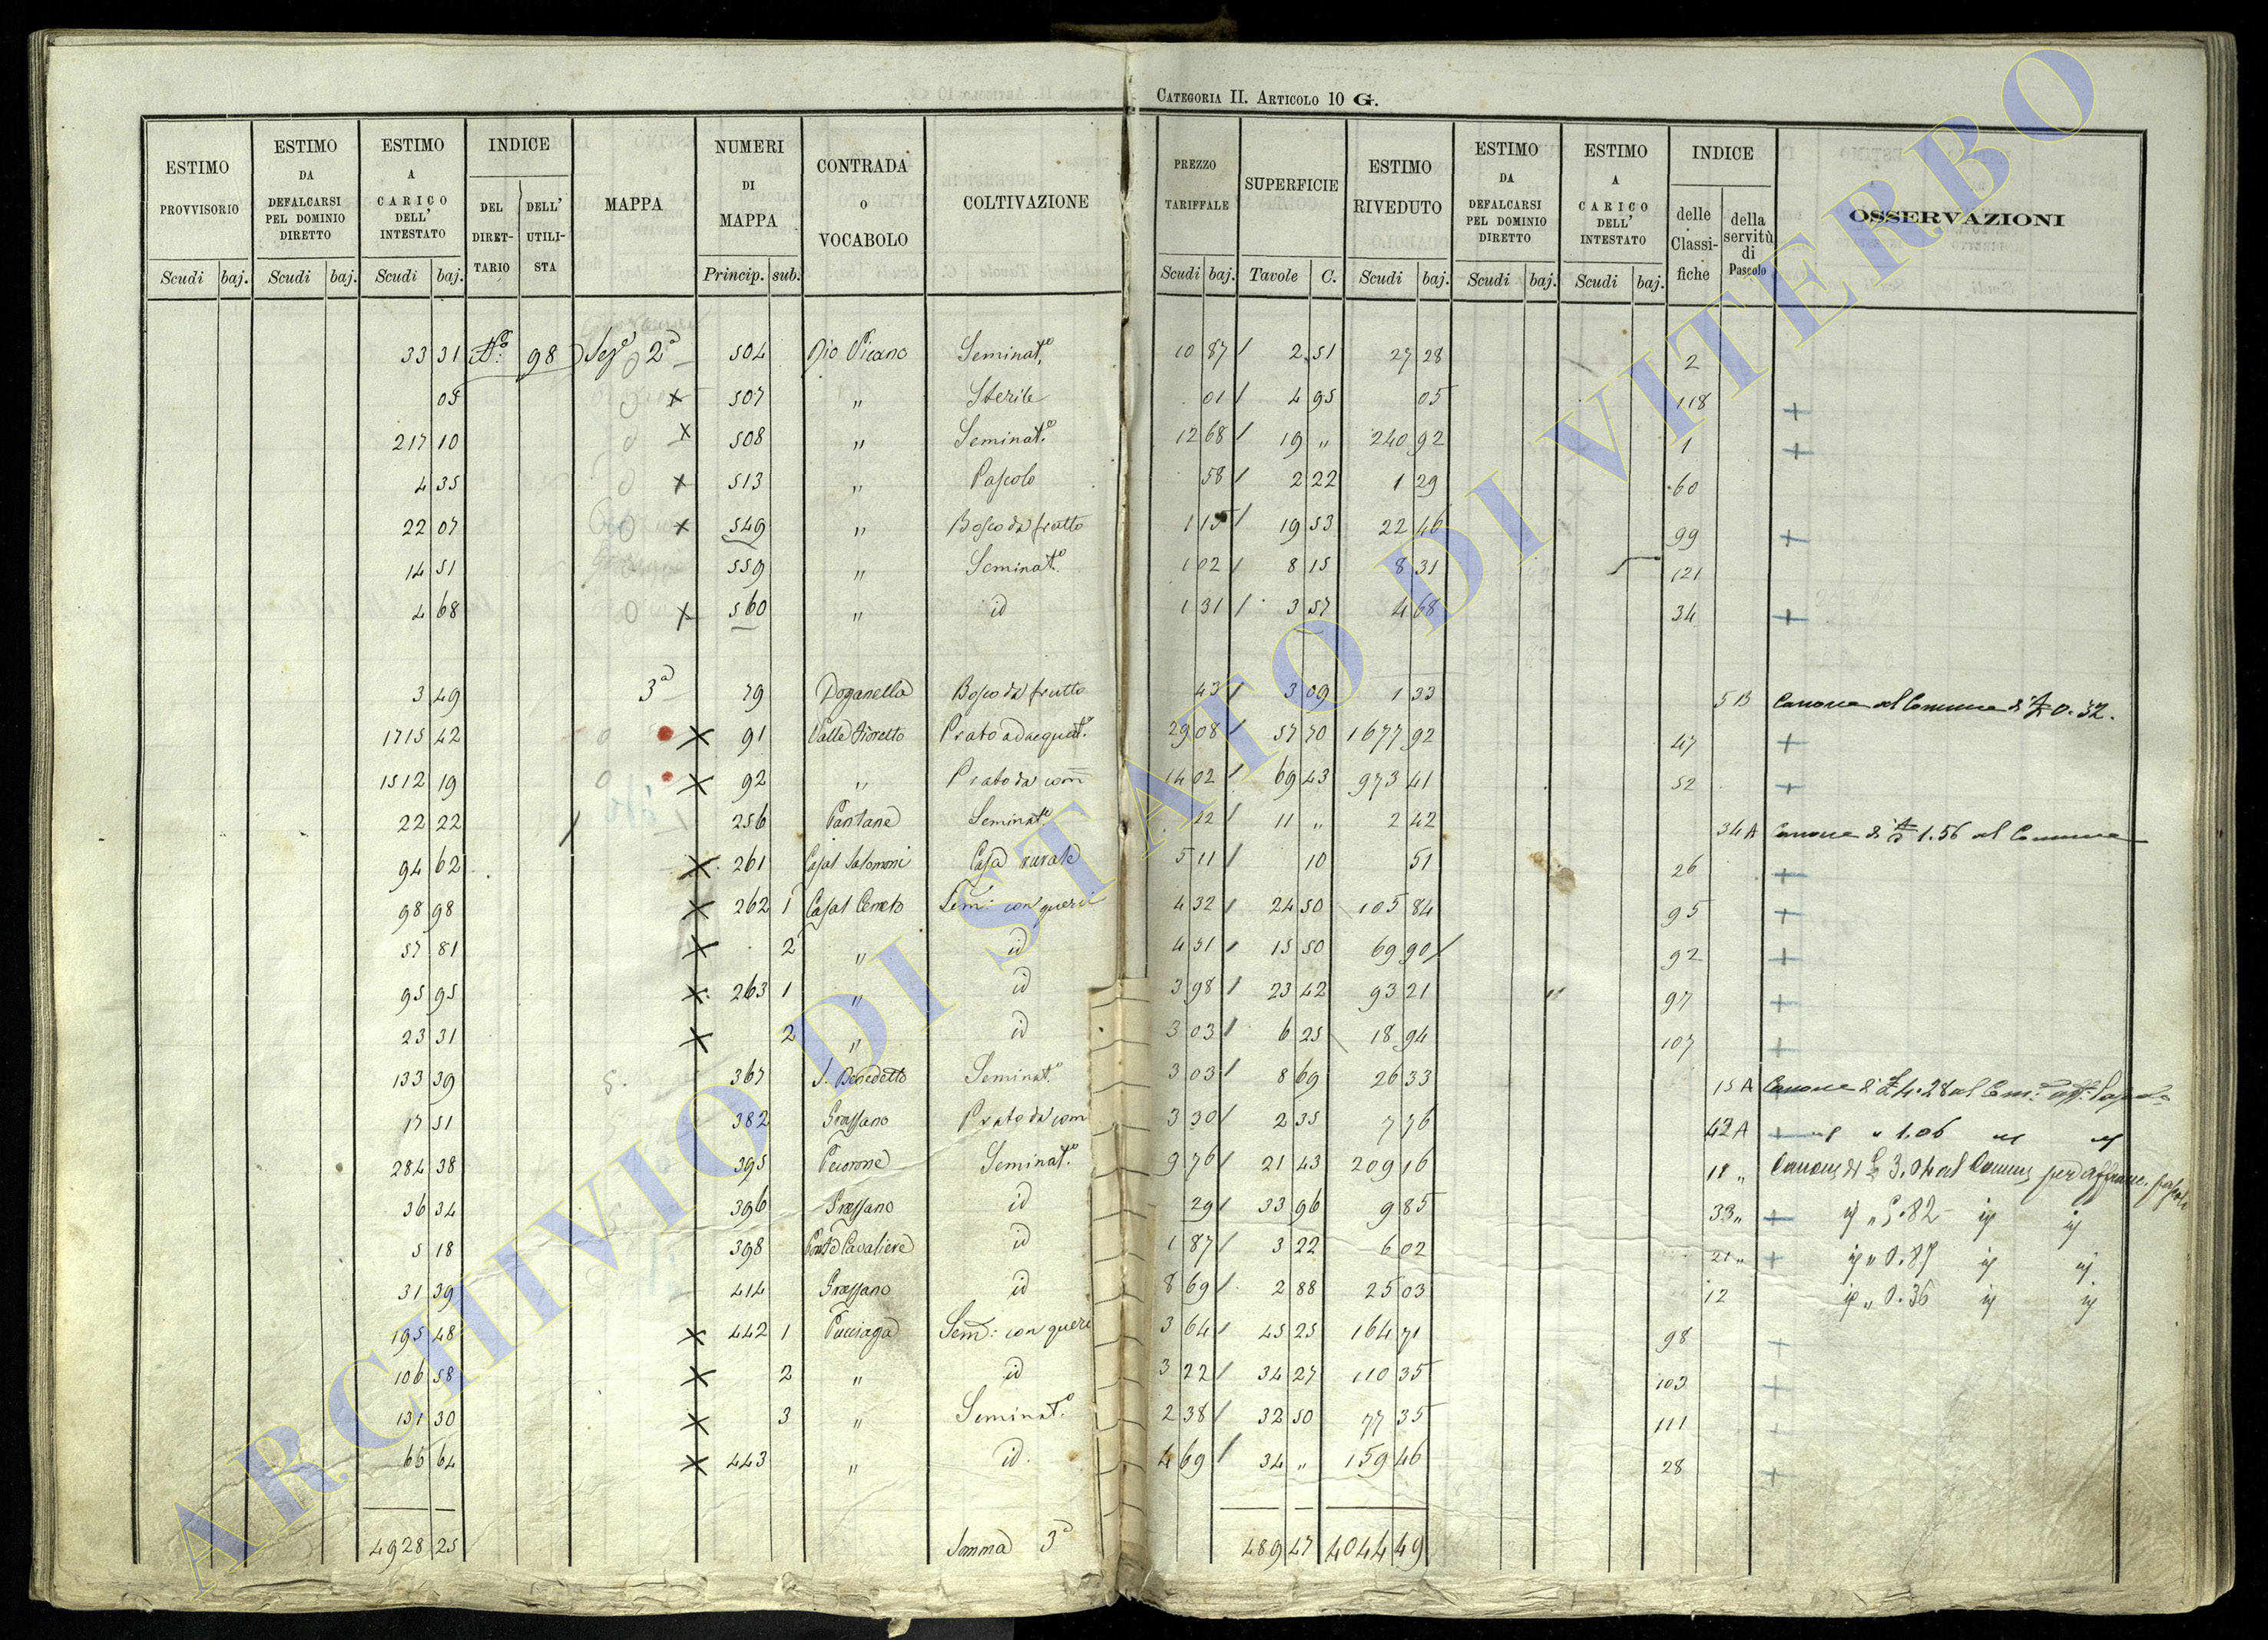 CATEGORIA II. ARTICOLO 10 G.
ESTIMO PROVVISORIO Scudi baj.
ESTIMO DA DEFALCARSI PEL DOMINIO DIRETTO Scudi baj.
ESTIMO A CARICO DELL' INTESTATO Scudi baj.
INDICE DEL DIRET-TARIO DELL' UTILI-STA
MAPPA
NUMERI DI MAPPA Princip. sub.
CONTRADA O VOCABOLO
COLTIVAZIONE
PREZZO TARIFFALE Scudi baj.
SUPERFICIE Tavole C.
ESTIMO RIVEDUTO Scudi baj.
ESTIMO DA DEFALCARSI PEL DOMINIO DIRETTO Scudi baj.
ESTIMO A CARICO DELL' INTESTATO Scudi baj.
INDICE delle Classi-fiche della servitù di Pascolo
OSSERVAZIONI
33 31 98 Sez.e 2a 504 Rio Vicano Seminat.o 10 87 2 51 27 28 2
05 x 507 " Sterile 01 4 95 05 118 +
217 10 x 508 " Seminat.o 12 68 19 " 240 92 1 +
4 35 x 513 " Pascolo 58 2 22 1 29 60
22 07 x 549 " Bosco da frutto 1 15 19 53 22 46 99 +
14 51 559 " Seminat.o 1 02 8 15 8 31 121
4 68 x 560 " id 1 31 3 57 4 68 34 +
3 49 3a 79 Doganella Bosco da frutto 43 3 09 1 33 5 B Canone al Comune di 0.32.
1715 42 x 91 Valle Fioretto Prato adacquat.o 29 08 57 70 1677 92 47 +
1512 19 x 92 " Prato da com 14 02 69 43 973 41 52 +
22 22 256 Pantane Seminat.o 22 11 " 2 42 34 A Canone di 1.56 al Comune
94 62 x 261 Casal Salomoni Casa rurale 5 11 10 51 26 +
98 98 x 262 1 Casal Cerreto Sem: con querci 4 32 24 50 105 84 95 +
57 81 x 2 " id 4 51 15 50 69 90 92 +
95 95 x 263 1 " id 3 98 23 42 93 21 97 +
23 31 x 2 " id 3 03 6 25 18 94 107 +
133 39 367 S. Benedetto Seminat.o 3 03 8 69 26 33 15 A Canone di 4.28 al Com:
17 51 382 Grassano Prato da com 3 30 2 35 7 76 42 A + " 1.06
284 38 395 Pecorone Seminat.o 9 76 21 43 209 16 18 " Canone di 3.04 al Comune per affranc. pascolo
36 34 396 Grassano id 29 33 96 9 85 33 " + id " 5.82 id id
5 18 398 Ponte Cavaliere id 1 87 3 22 6 02 21 " + id " 0.87 id id
31 39 414 Grassano id 8 69 2 88 25 03 12 id " 0.36 id id
195 48 x 442 1 Sem: con querc 3 64 45 25 164 71 98 +
106 58 x 2 " id 3 22 34 27 110 35 103 +
131 30 x 3 " Seminat.o 2 38 32 50 77 35 111 +
66 64 x 443 " id. 4 69 34 " 159 46 28 +
4928 25 Somma 3a 489 47 4044 49
ARCHIVIO DI STATO DI VITERBO